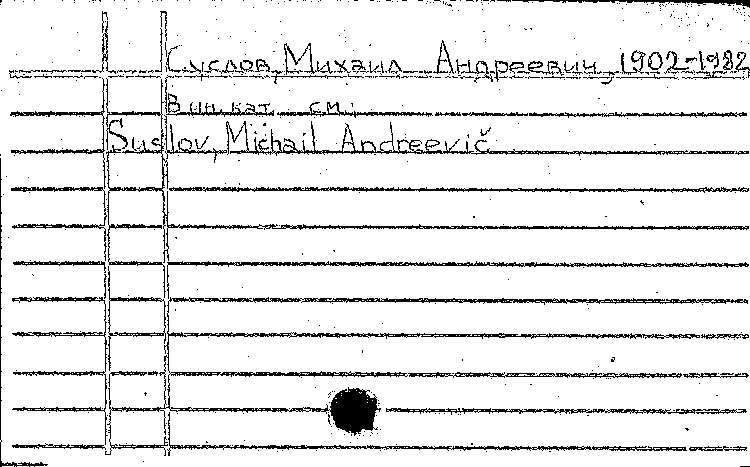 Суслов, Михаил Андреевич, 1902-1982
В ин. кат. см.:
Suslov, Michail Andreevič